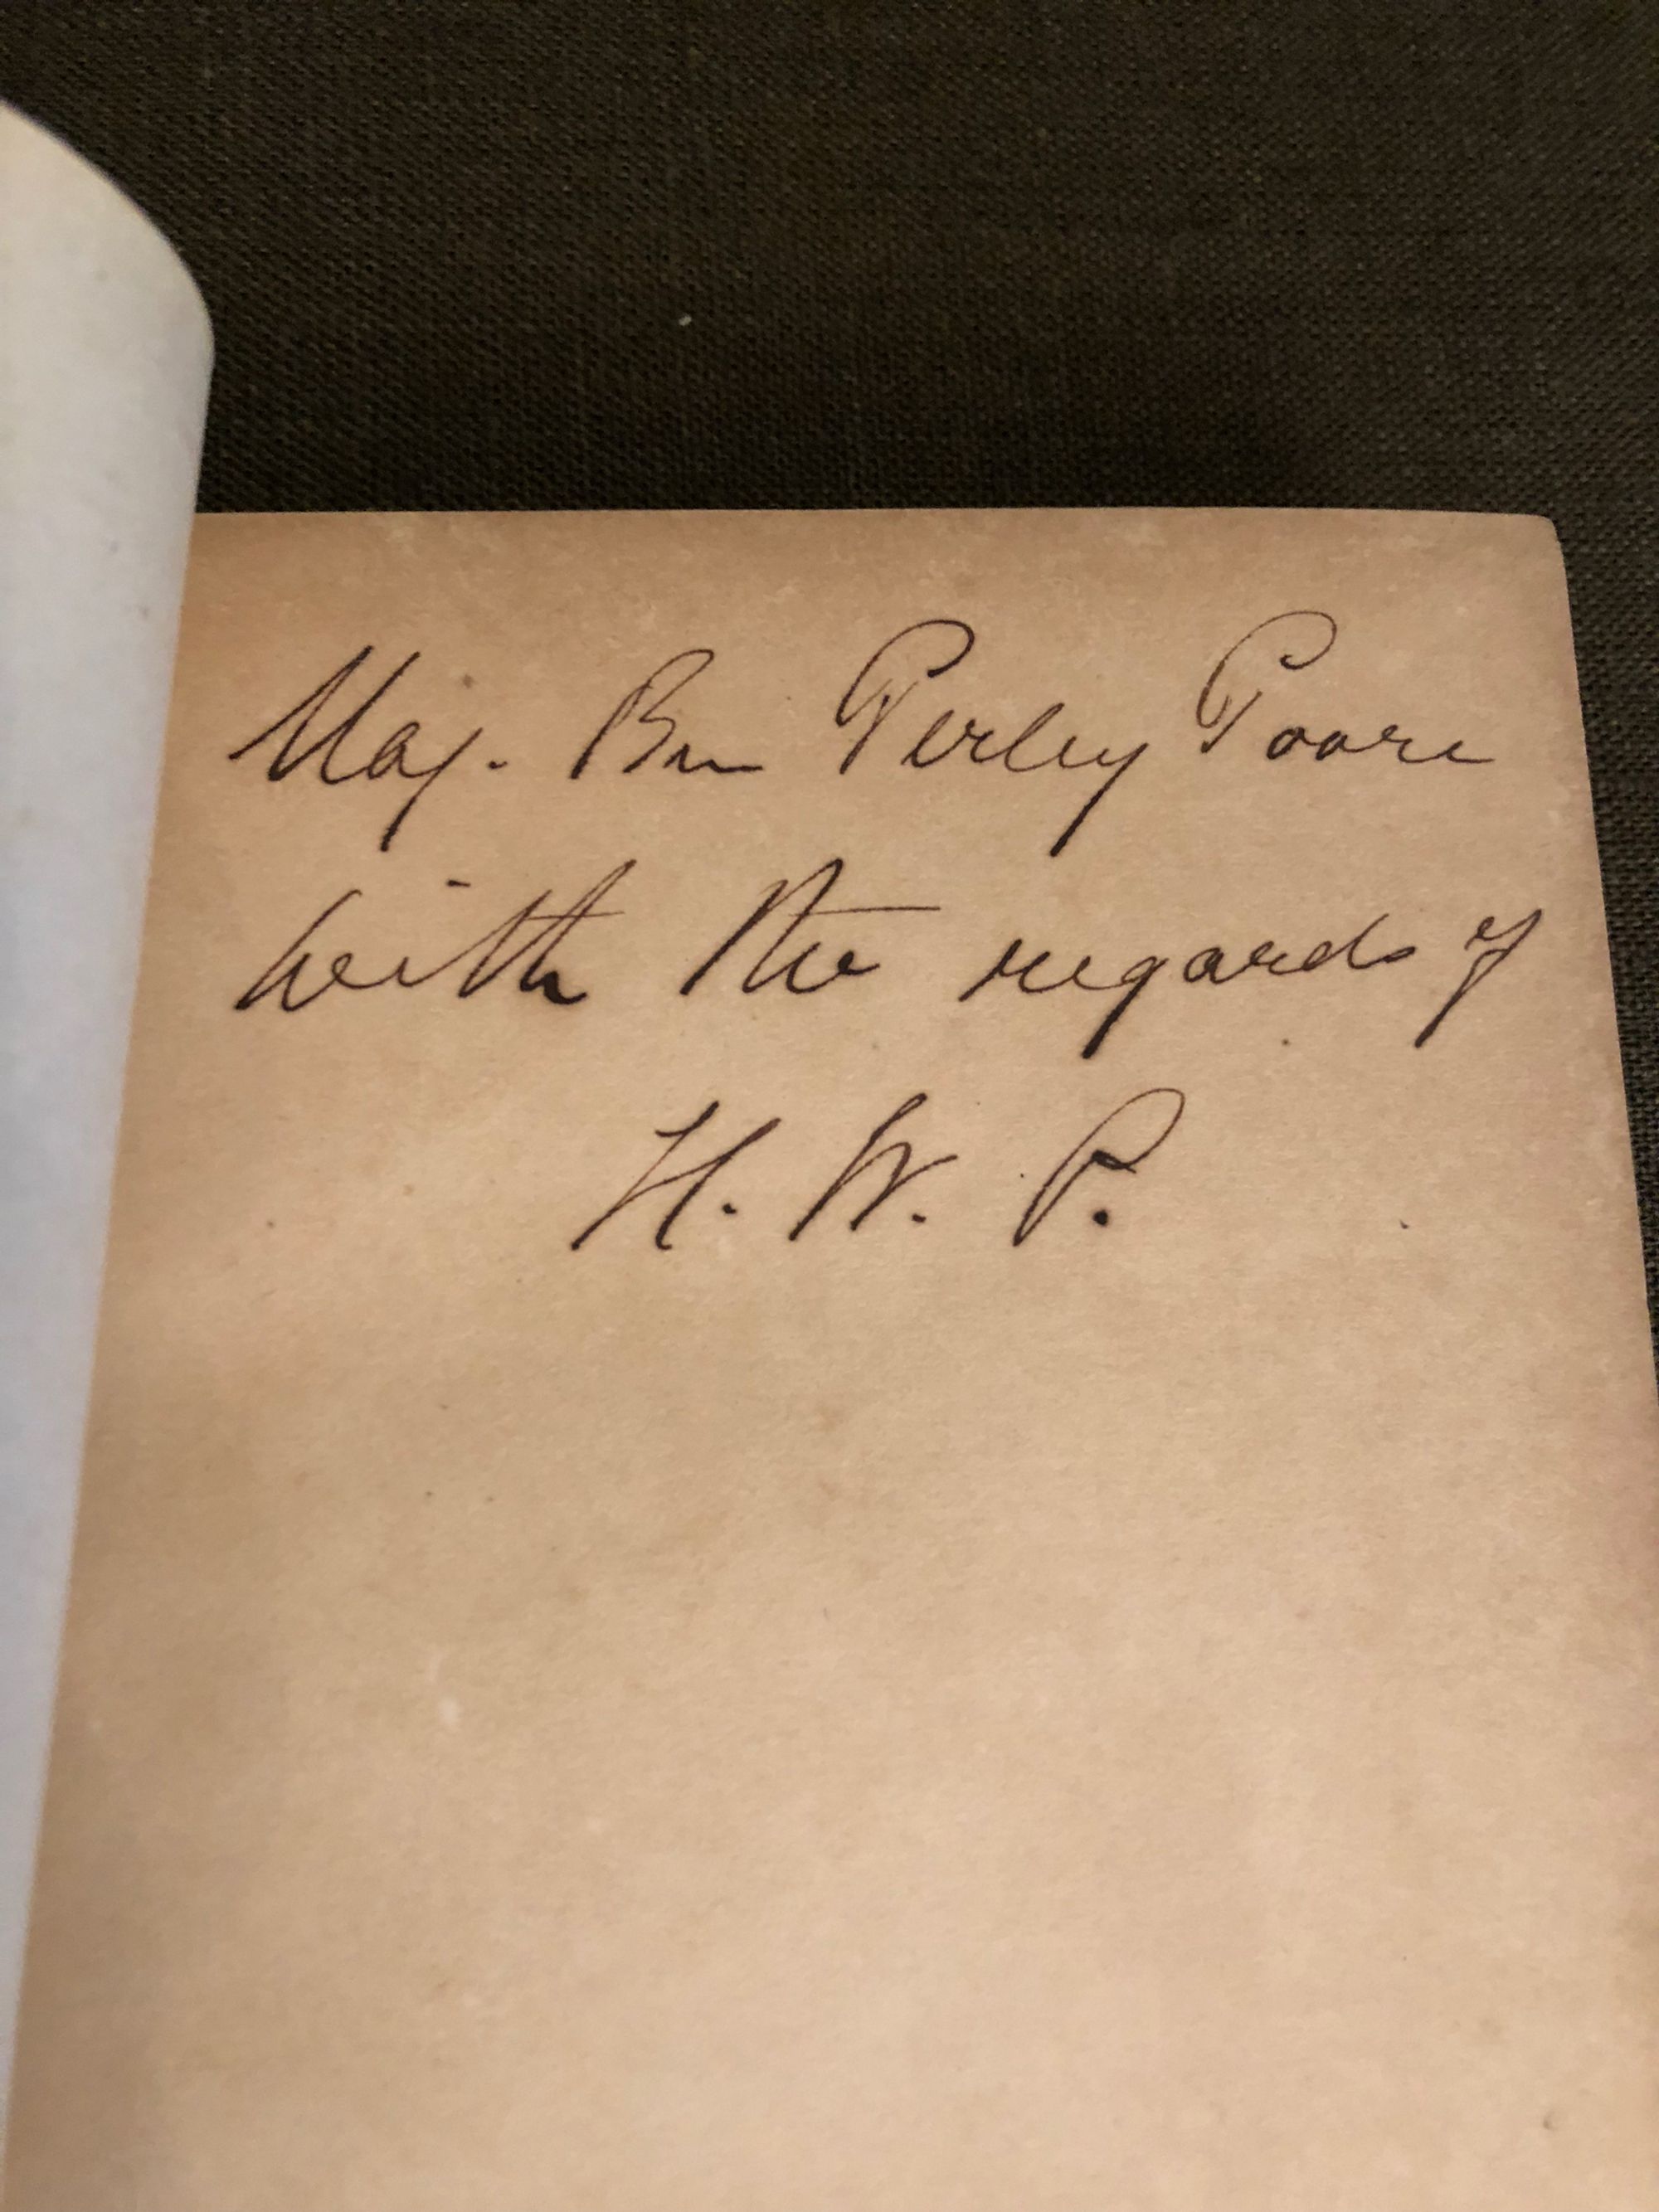 Maj. Ben Perley Poore
with the regards of
H. W. P.